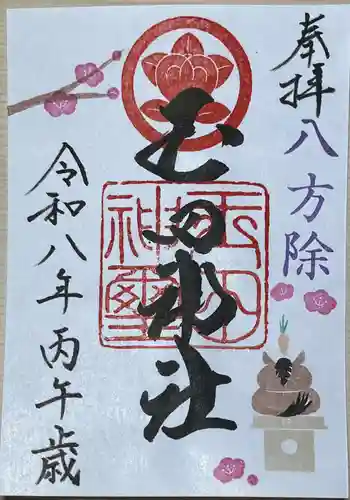 奉拝
八方除
玉田神社
玉田神社璽
令和八年丙午歳